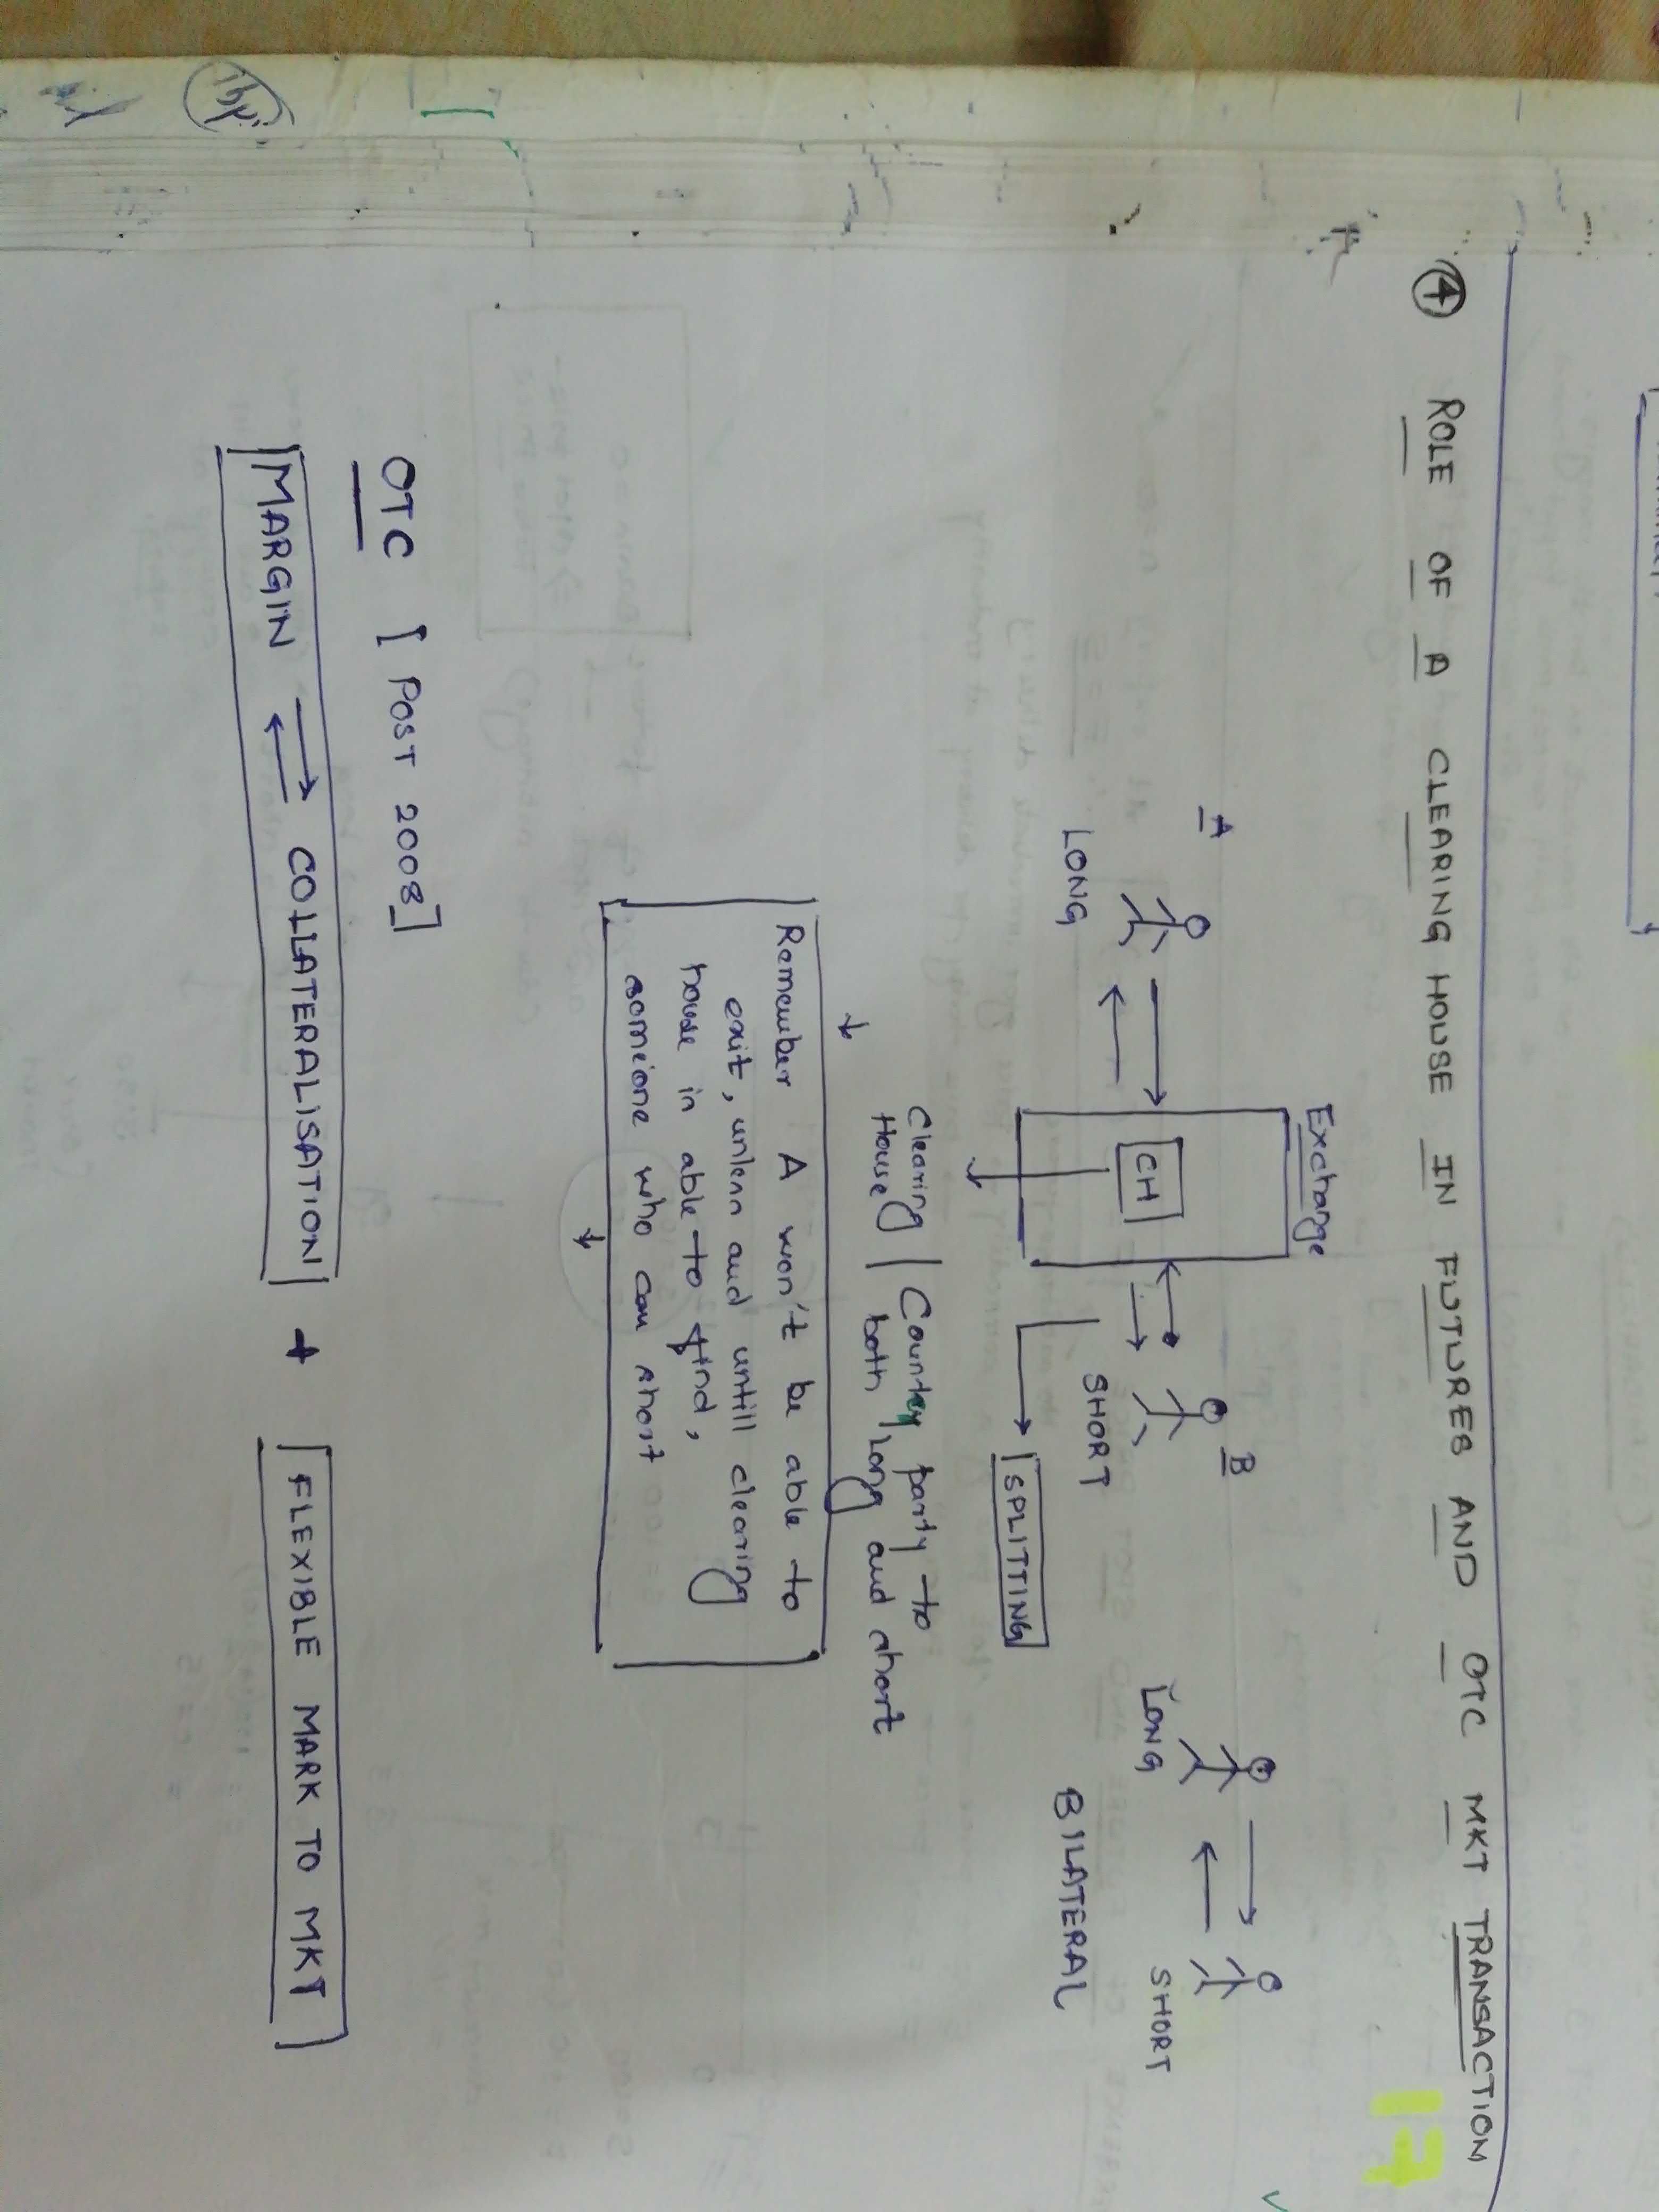 17
④ ROLE OF A CLEARING HOUSE IN FUTURES AND OTC MKT TRANSACTION
Exchange
A
B
CH
LONG
SHORT
LONG
SHORT
SPLITTING
BILATERAL
Clearing House | Counter party to
both long and short
Remember A won't be able to
exit, unless and untill clearing
house in able to find,
someone who can short
OTC [POST 2008]
[MARGIN ⇄ COLLATERALISATION] + [FLEXIBLE MARK TO MKT]